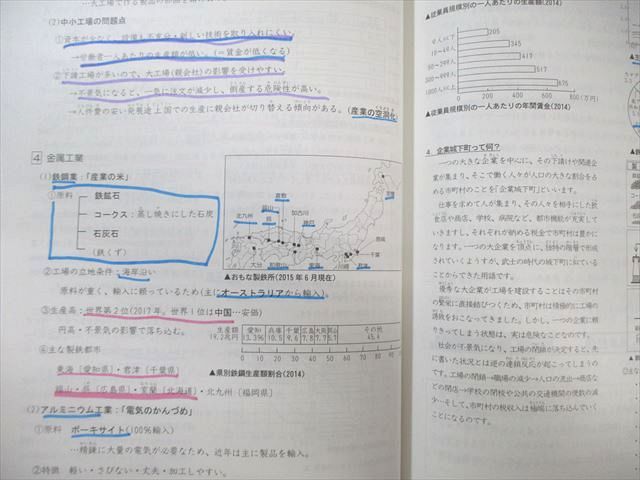 (2)中小工場の問題点
①資本が少なく、設備も不充分・新しい技術を取り入れにくい。
→労働者一人あたりの生産額が低い。(＝賃金が低くなる)
②下請工場が多いので、大工場(親会社)の影響を受けやすい。
→不景気になると、一気に注文が減少し、倒産する危険性が高い。
→人件費の安い発展途上国での生産に親会社が切り替える傾向がある。(産業の空洞化
4 金属工業
(1)鉄鋼業:「産業の米」
①原料
鉄鉱石
コークス:蒸し焼きにした石炭
石灰石
(鉄くず)
②工場の立地条件:海岸沿い
原料が重く、輸入に頼っているため(主にオーストラリアから輸入)。
③生産高:世界第2位(2017年。世界1位は中国…安価)
円高・不景気の影響で落ち込む。
④主な製鉄都市
東海〔愛知県〕・君津〔千葉県〕
福山・呉〔広島県〕・室蘭〔北海道〕・北九州〔福岡県〕
(2)アルミニウム工業:「電気のかんづめ」
①原料 ボーキサイト(100%輸入)
…精錬に大量の電気が必要なため、近年は主に製品を輸入。
②特徴 軽い・さびない・丈夫・加工しやすい。
倉敷
福山
呉
加古川
神戸
北九州
大分
和歌山
東海
川崎
君津
千葉
鹿嶋
室蘭
▲おもな製鉄所(2015年6月現在)
生産額
19.2兆円
愛知 兵庫 千葉 広島 大阪
その他
0 10 20 30 40 50 60 70 80 90
▲県別鉄鋼生産額割合(2014)
▲従業員規模別の一人あたりの生産額(2014)
205
10～49人
345
417
517
300～499人
675
1000人以上
0 100 200 300 400 500 600 700 800(万円)
▲従業員規模別の一人あたりの年間賃金(2014)
4 企業城下町って何？
一つの大きな企業を中心に、その下請けや関連企
業が集まり、そこで働く人々が人口の大きな割合を占
める市町村のことを「企業城下町」といいます。
仕事を求めて人が集まり、その人々を相手にした飲
食店や商店、学校、病院など、都市機能が充実して
いきますし、それぞれが納める税金で市町村は豊かに
なります。一つの大企業を頂点に、独特の階層で形成
されていくようすが、武士の時代の城下町に似ている
ことからできた用語です。
優秀な大企業が工場を建設することはその市町村
の繁栄に直接結びつくため、市町村は積極的に工場の
誘致をおこなってきました。しかし、一つの企業に頼
りきってしまう状態は、実は危険なことなのです。
社会が不景気になり、工場の閉鎖が決定すると、先
に書いた状況とは逆の連鎖反応が起こってしまうの
です。工場の閉鎖→職場の減少→人口の流出→商店な
どの閉店→学校の閉校や公共の交通機関の便数の減
少…そして、市町村の税収入は極端に落ち込んでいく
ことになるのです。